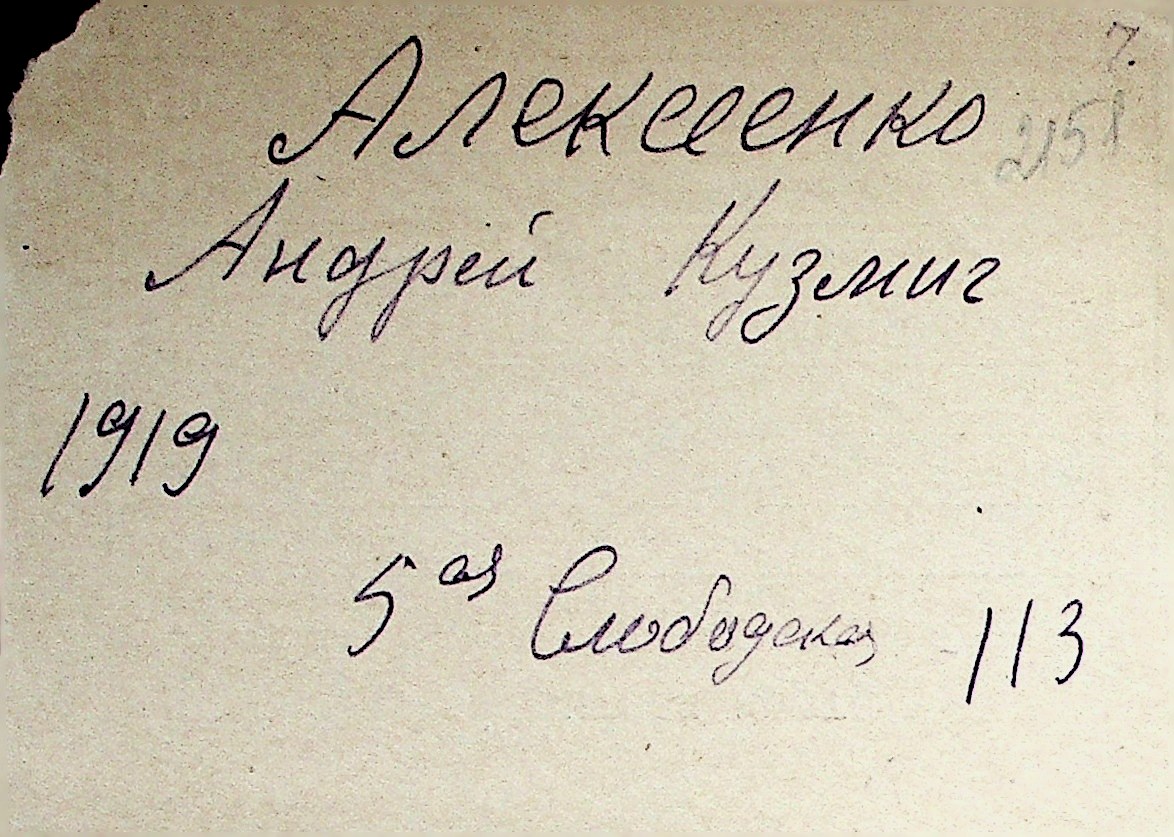 7.
Алексеенко 2151
Андрей Кузмич
1919
5ая Слободская 113